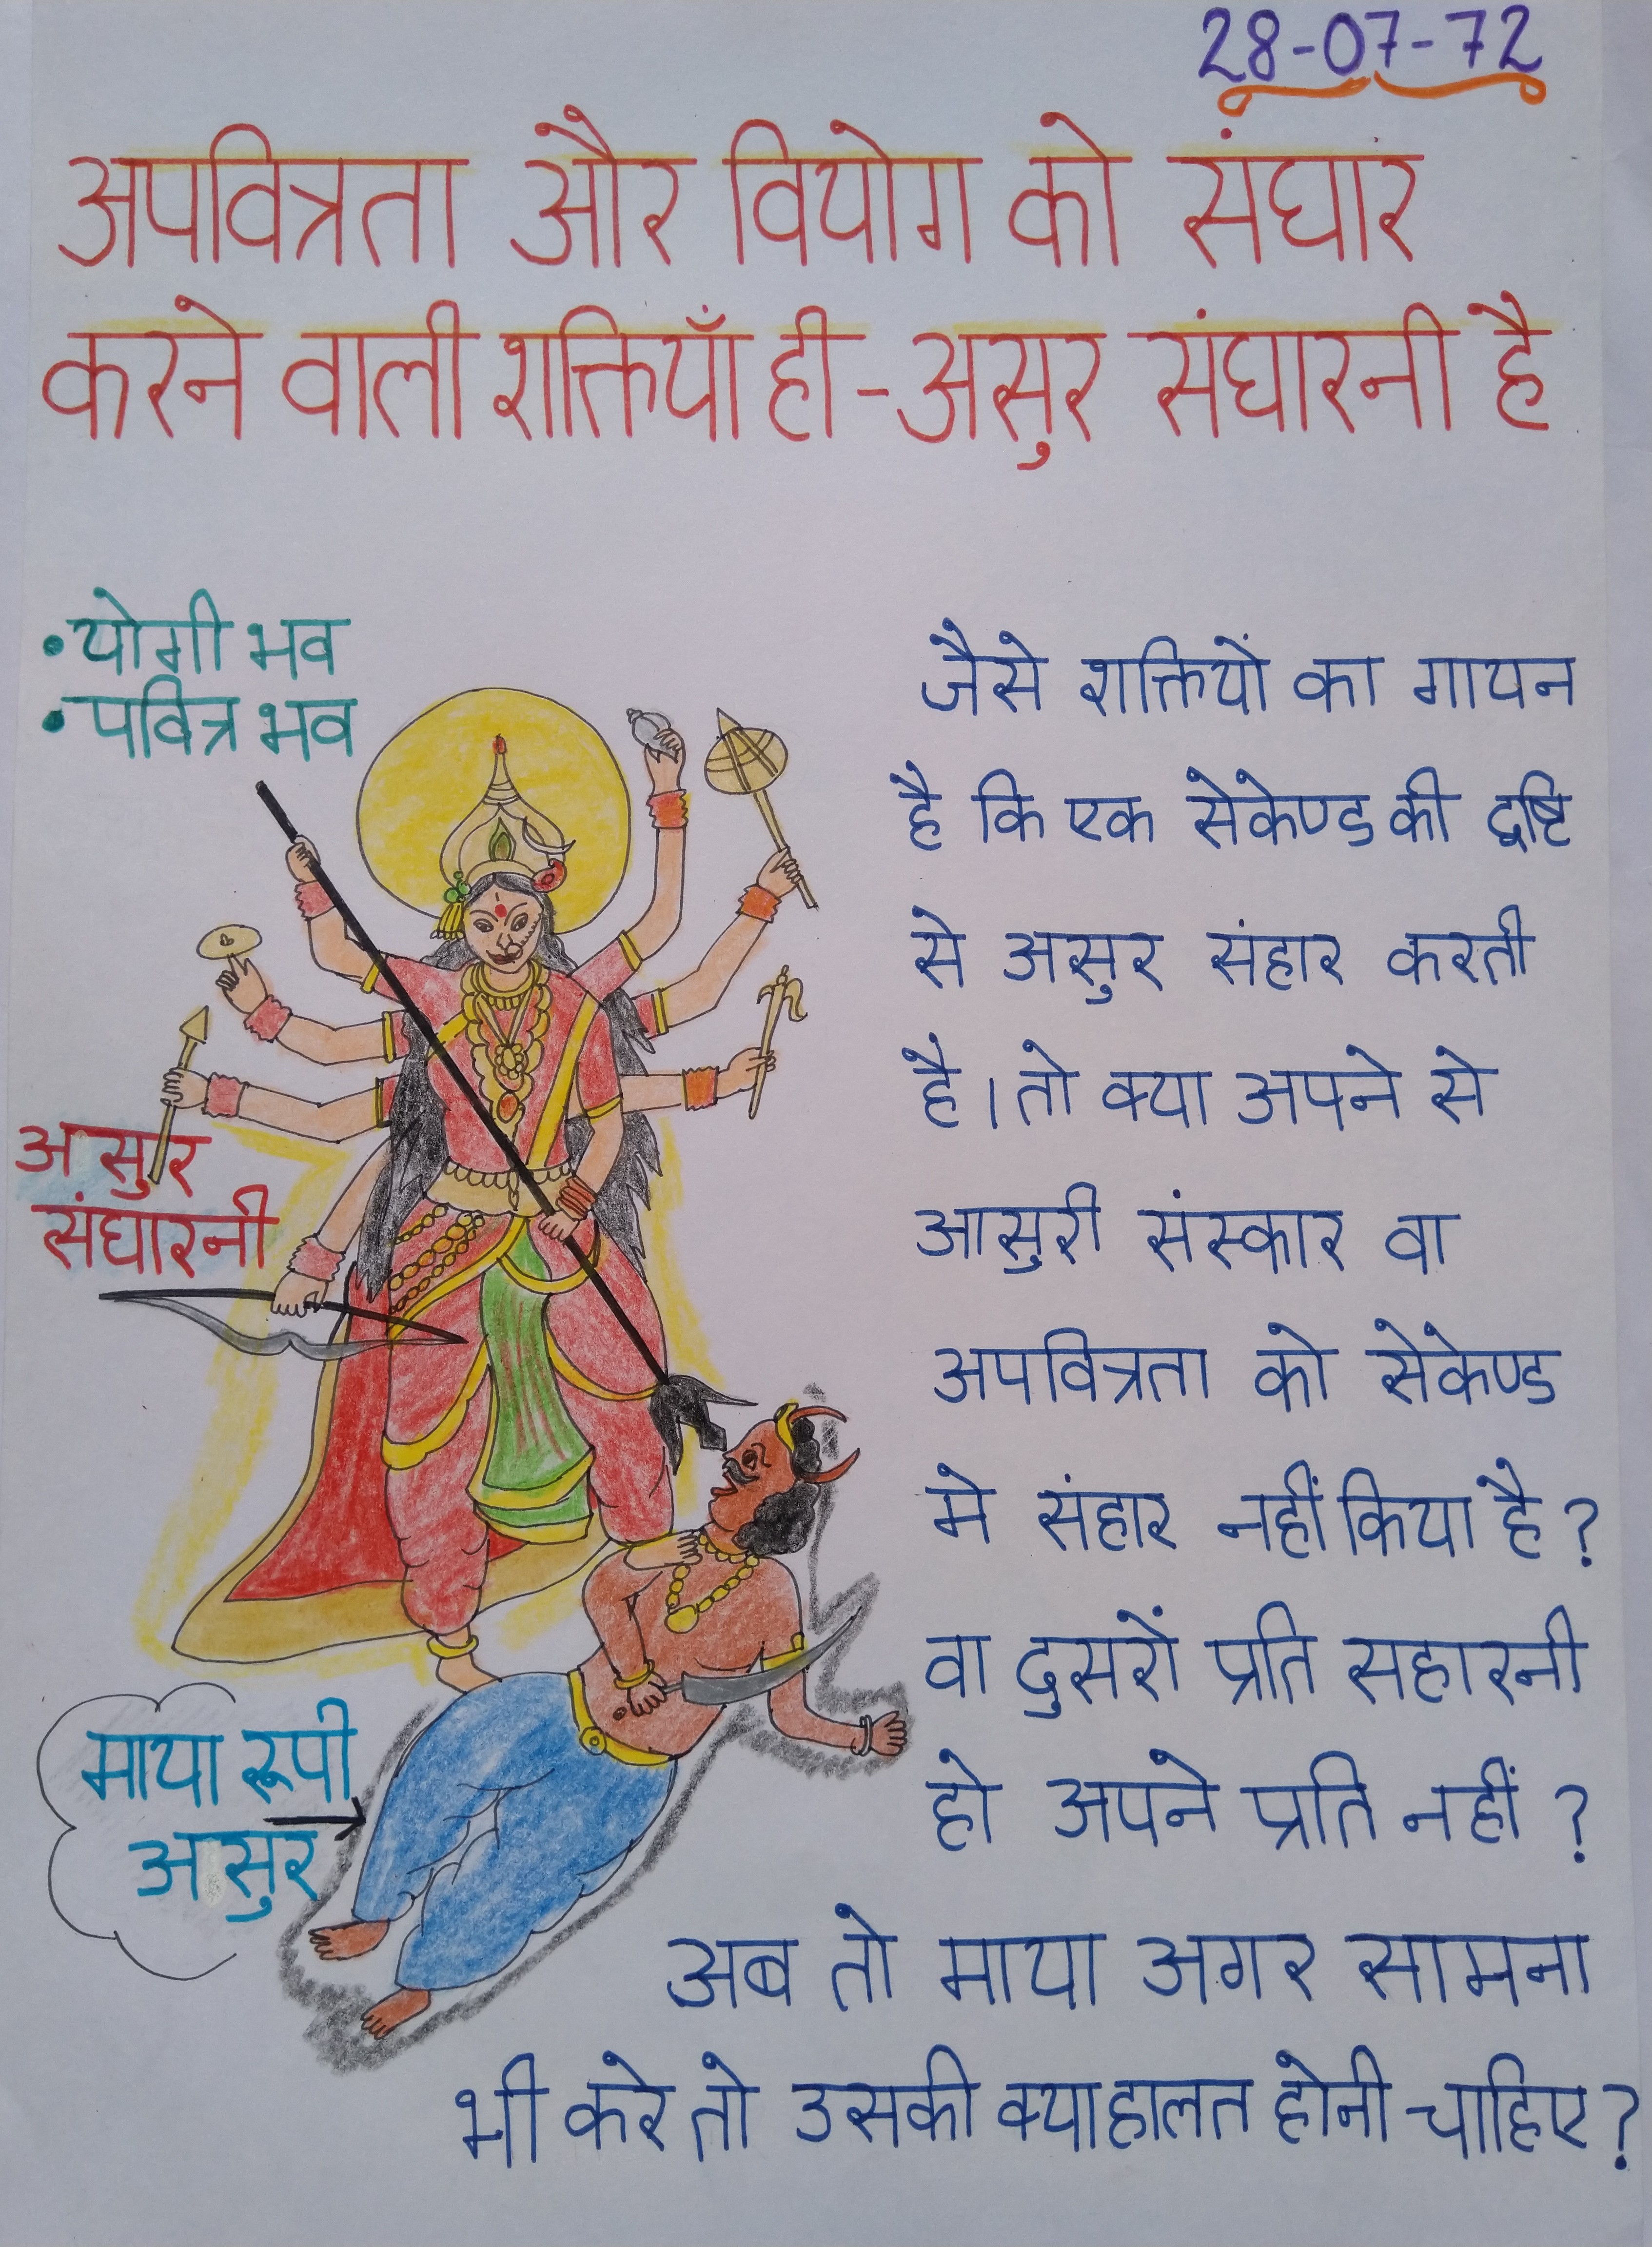 28-07-72
अपवित्रता और वियोग को संघार
करने वाली शक्तियाँ ही - असुर संघारनी है
• योगी भव
• पवित्र भव
असुर
संघारनी
माया रूपी
असुर
जैसे शक्तियों का गायन
है कि एक सेकेण्ड की दृष्टि
से असुर संहार करती
है। तो क्या अपने से
आसुरी संस्कार वा
अपवित्रता को सेकेण्ड
मे संहार नहीं किया है?
वा दुसरों प्रति सहारनी
हो अपने प्रति नहीं?
अब तो माया अगर सामना
भी करे तो उसकी क्या हालत होनी चाहिए?